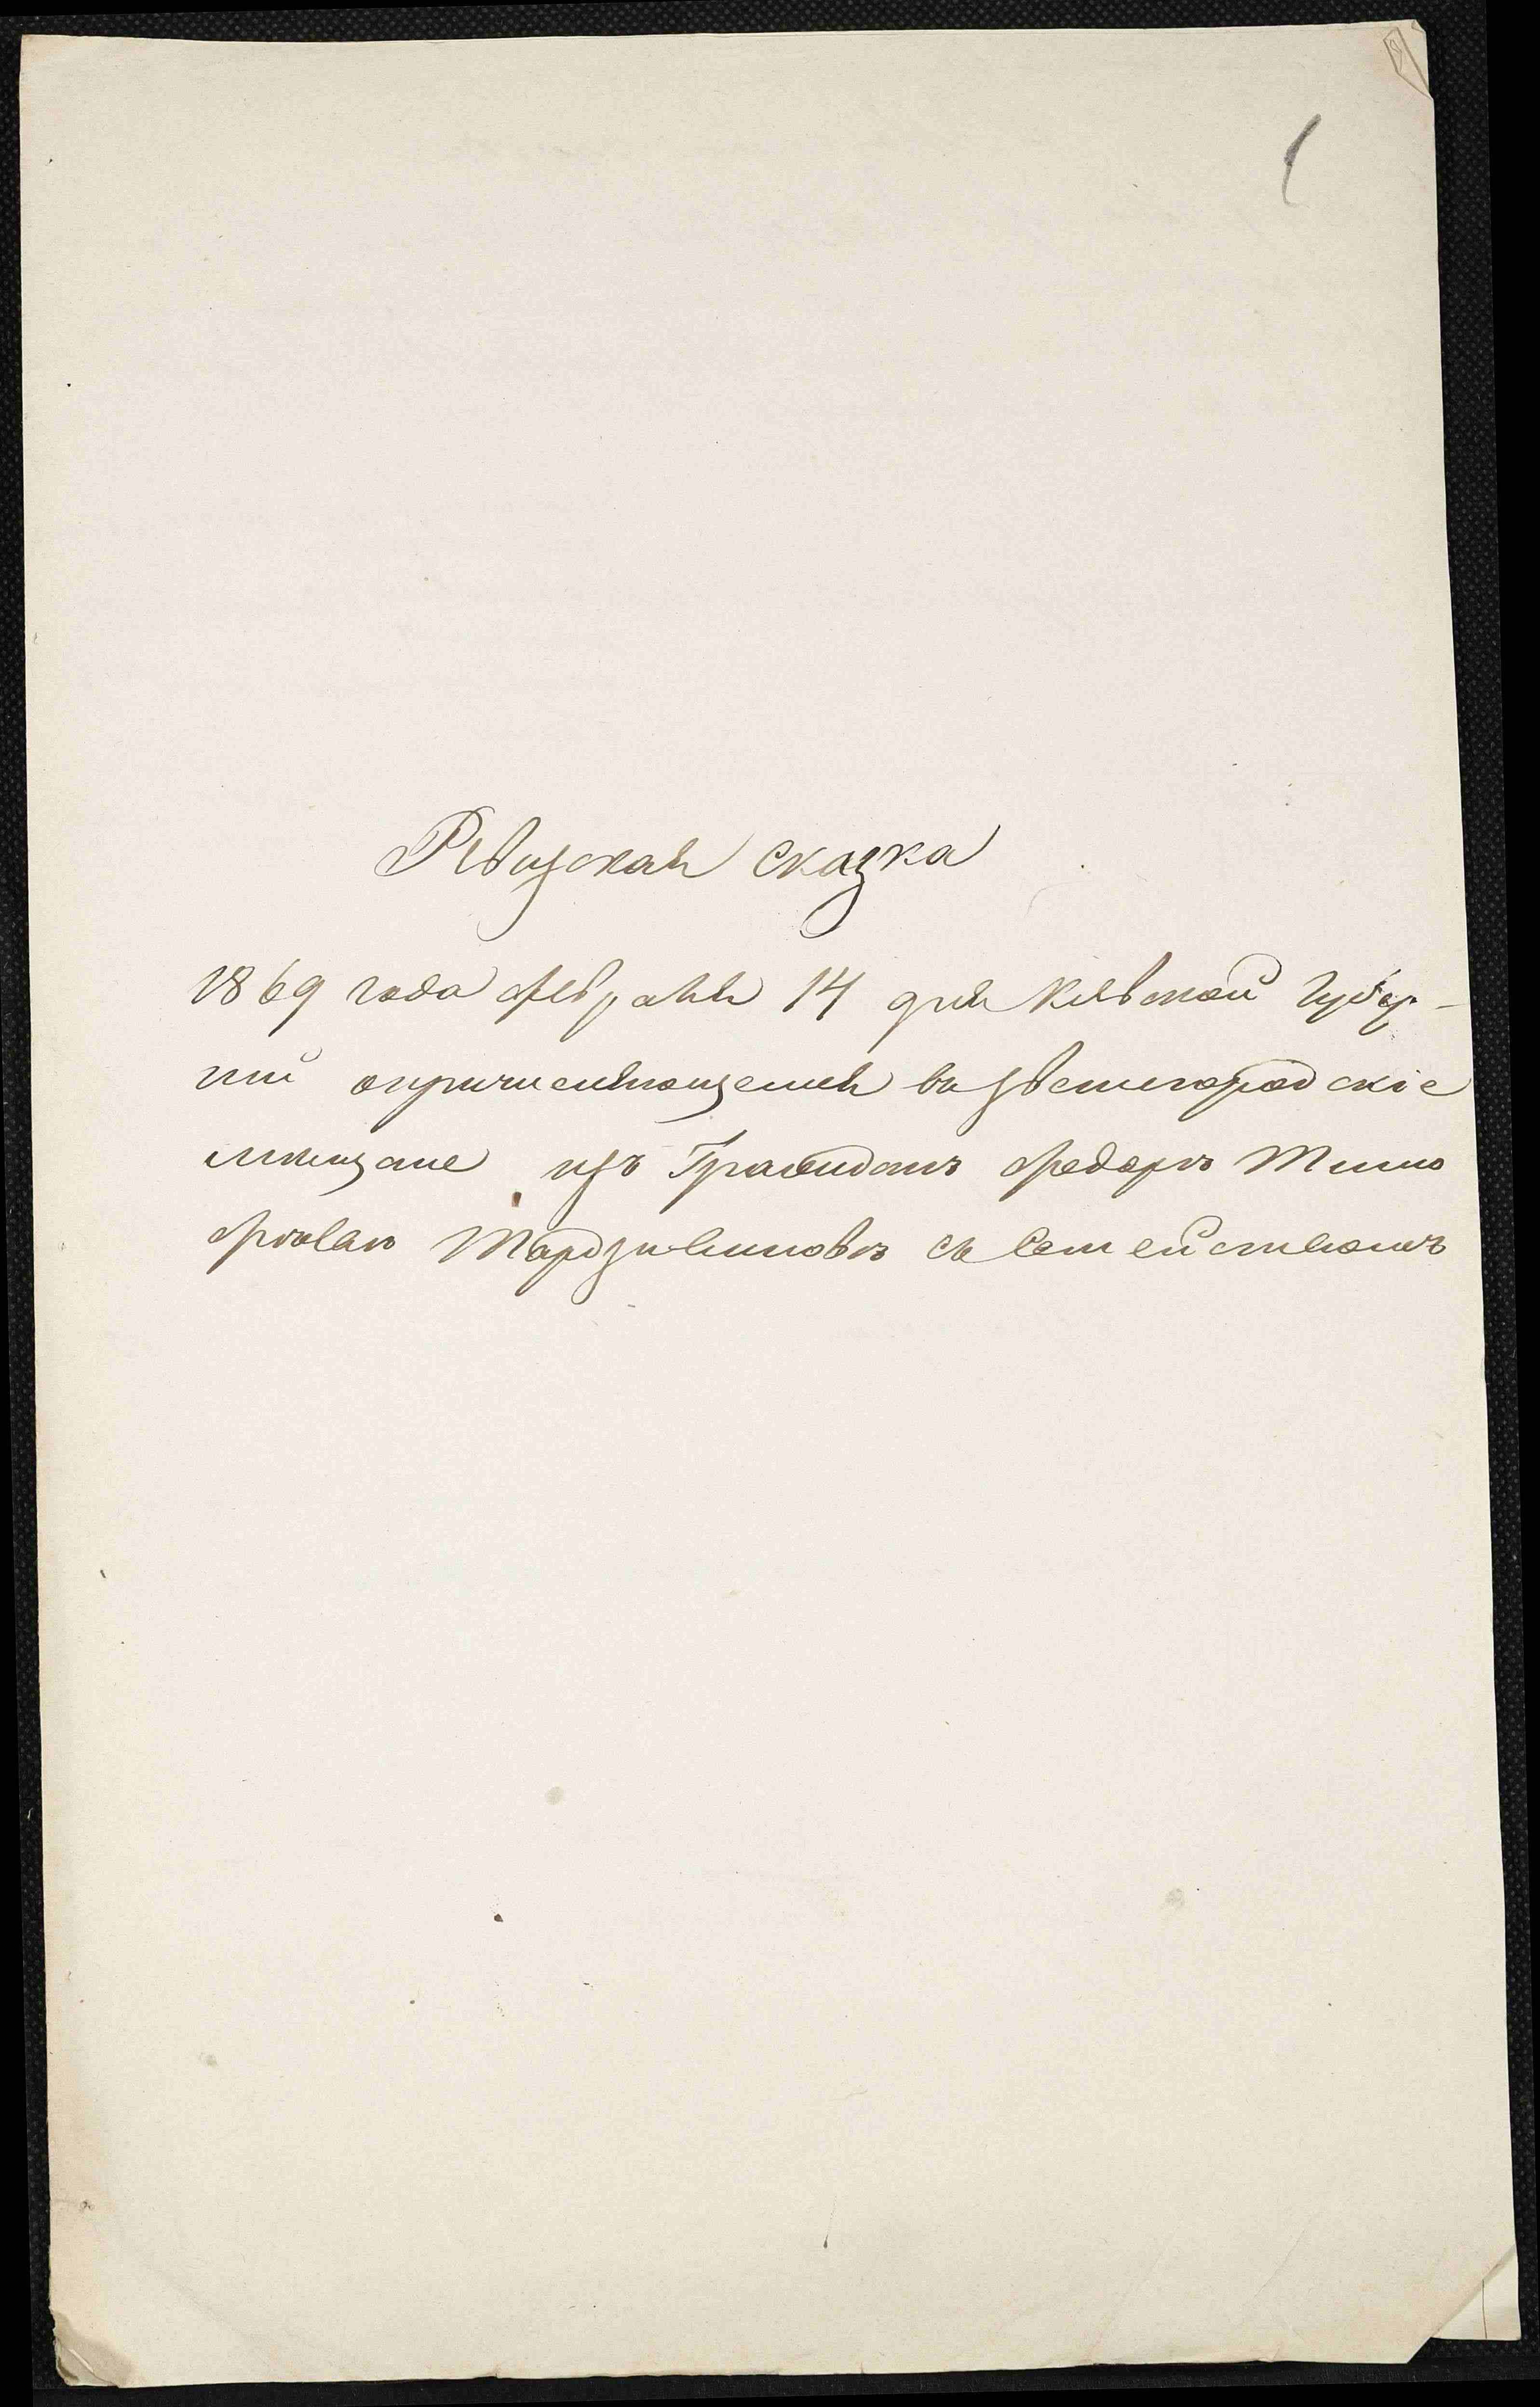 Ревизская сказка
1869 года февраля 14 дня Киевской Губер-
ніи о причисляющемся въ Звенигородскіе
мещане изъ Гражданъ Федоръ Тимо
феевъ съ Семействомъ